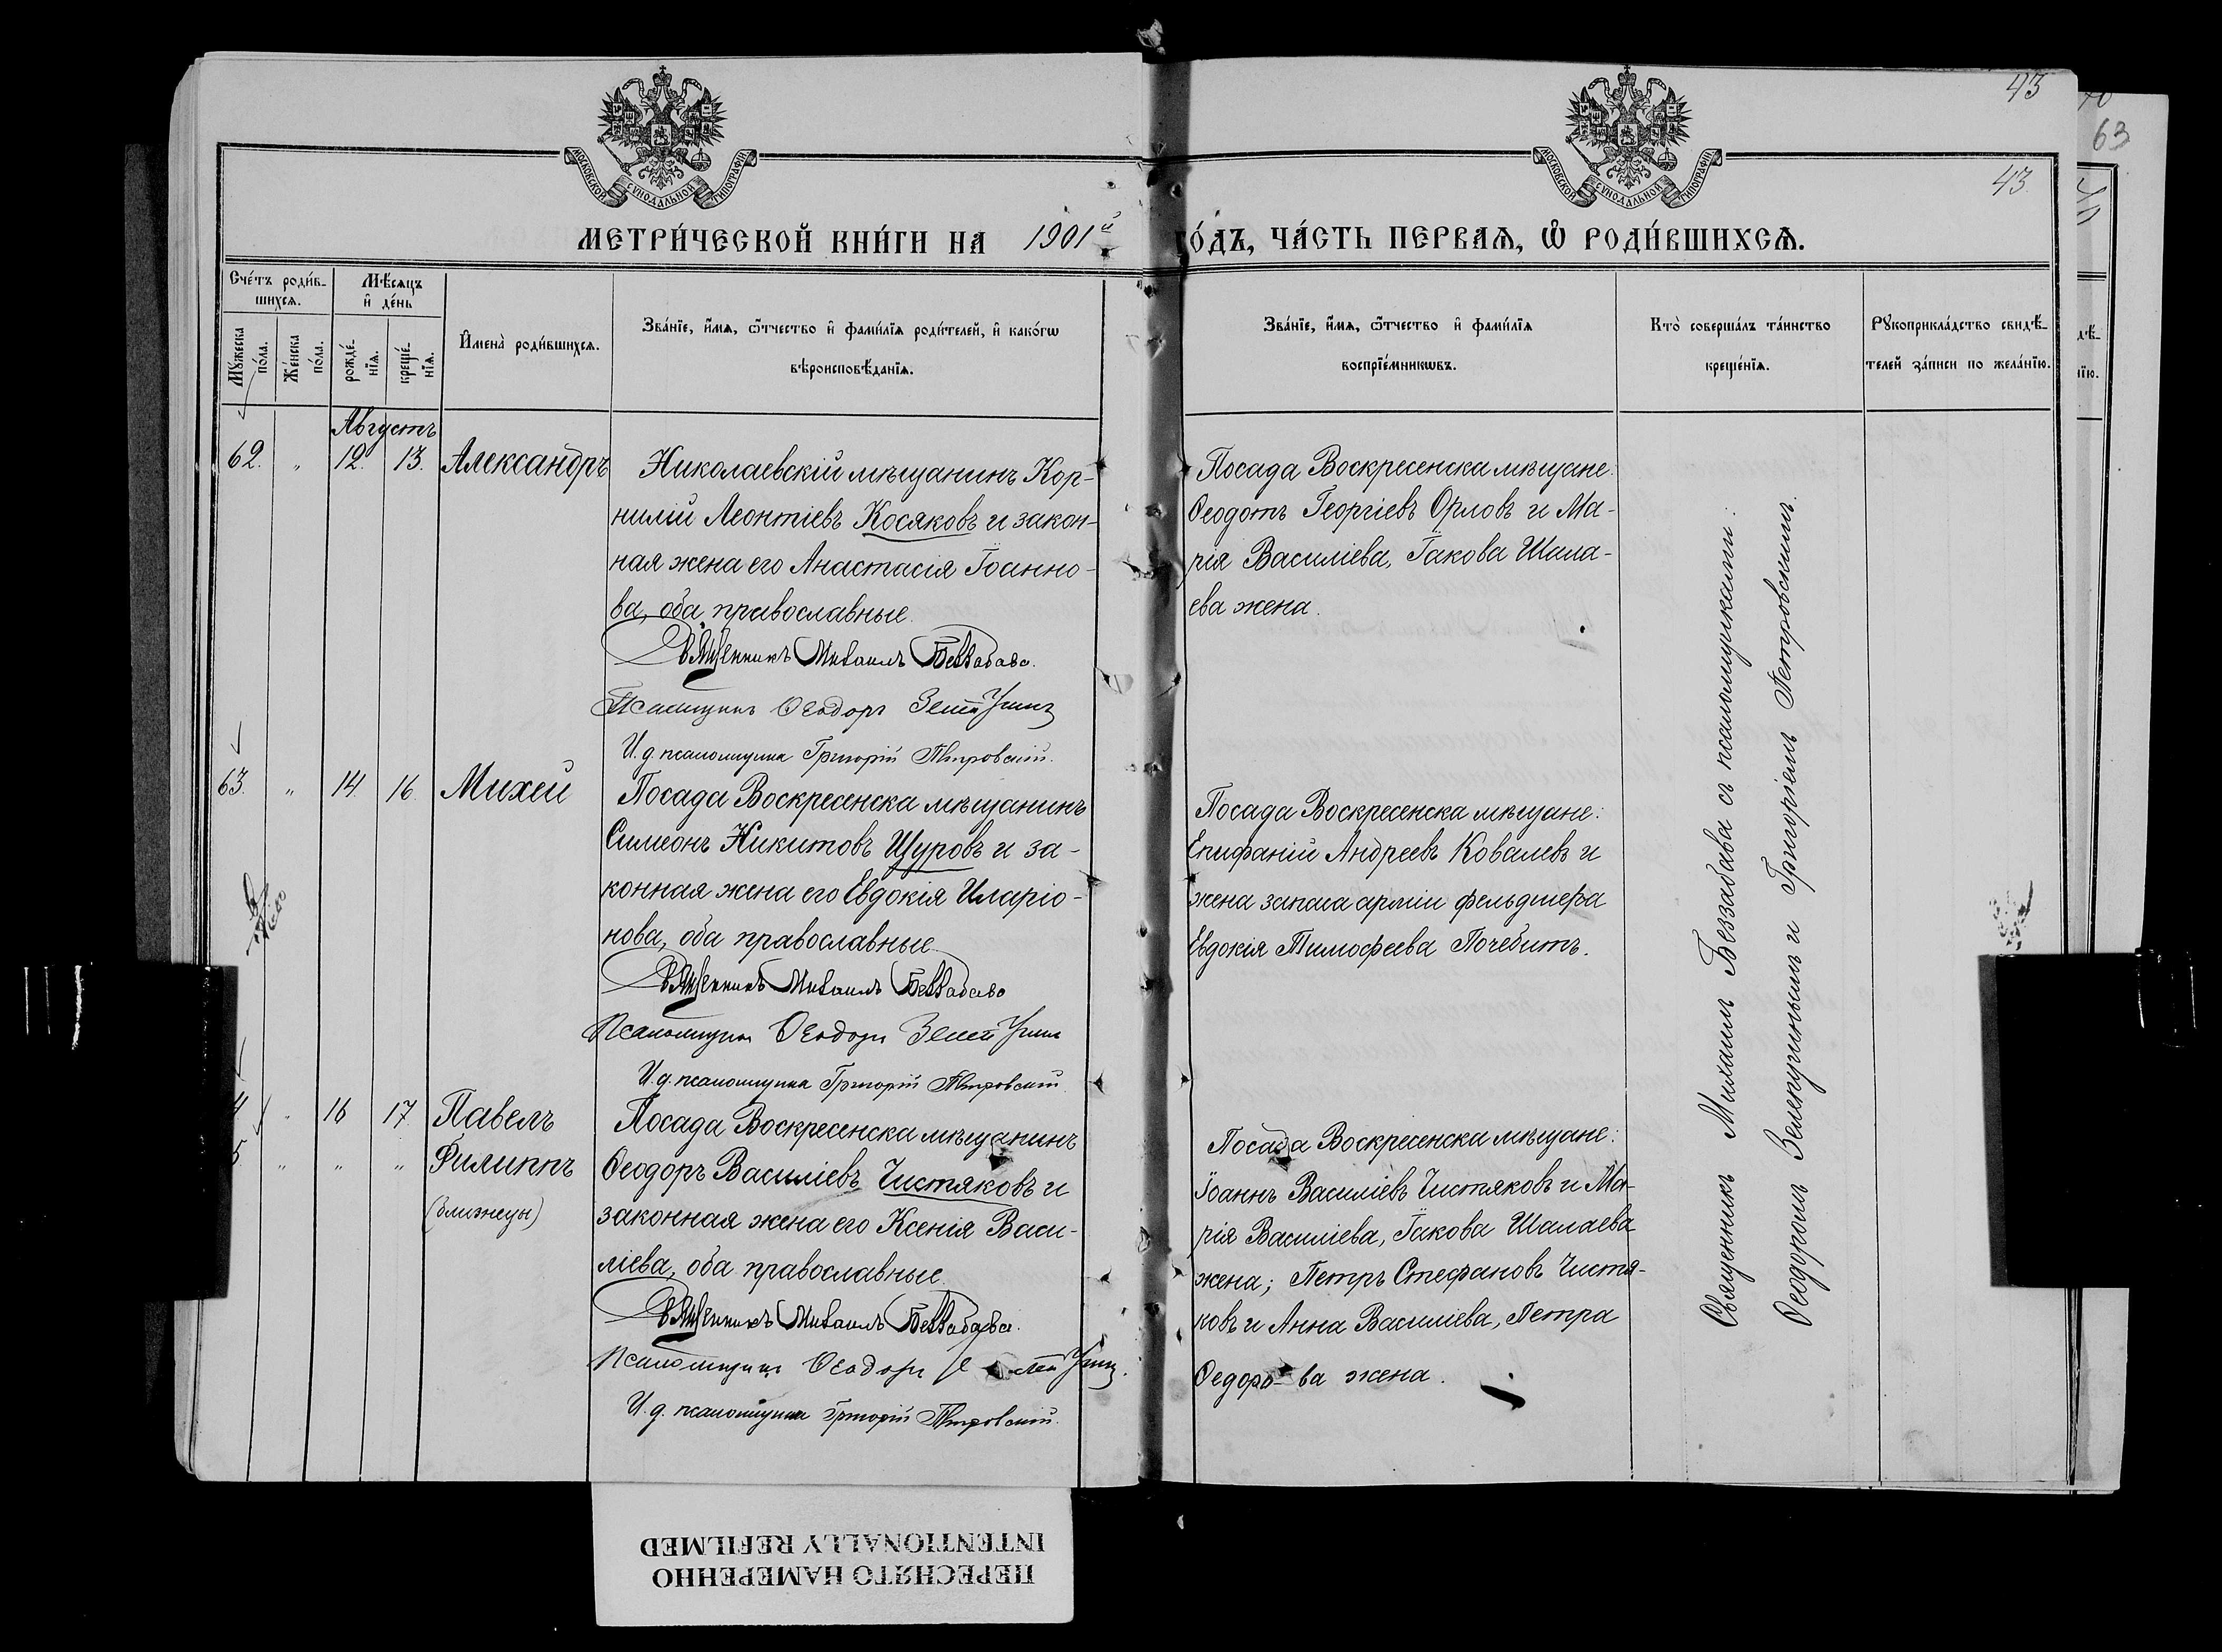 43
40
63
МОСКОВСКОЙ СѴНОДАЛЬНОЙ ТИПОГРАФІИ
МОСКОВСКОЙ СѴНОДАЛЬНОЙ ТИПОГРАФІИ
43.
МЕТРИ́ЧЕСКОЙ КНИ́ГИ НА 1901й
ГО́ДЪ, ЧА́СТЬ ПЕРВАѦ, Ѽ РОДИ́ВШИХСѦ.
Сче́тъ роди́в-
шихсѧ.
Мꙋ́жеска
по́ла.
Же́нска
по́ла.
Мѣ́сѧцъ
и҆ де́нь
рожде́-
нїѧ.
креще́-
нїѧ.
И҆мена̀ роди́вшихсѧ.
Зва́нїе, и҆́мѧ, ѻ҆́тчество и҆ фами́лїѧ роди́телей, и҆ како́гѡ
вѣроисповѣ́данїѧ.
Зва́нїе, и҆́мѧ, ѻ҆́тчество и҆ фами́лїѧ
воспрїе́мникѡвъ.
Кто̀ соверша́лъ та́инство
креще́нїѧ.
Рꙋкоприкла́дство свидѣ́-
телей за́писи по жела́нїю.
Августъ
62. „ 12. 13. Александръ
Николаевскій мѣщанинъ Кор-
нилій Леонтіевъ Косяковъ и закон-
ная жена его Анастасія Іоанно-
ва, оба православные.
Священникъ Михаилъ Беззабава.
Псаломщикъ Ѳеодоръ
И. д. псаломщика Григорій Петровскій.
Посада Воскресенска мѣщане:
Ѳеодотъ Георгіевъ Орловъ и Ма-
рія Василіева, Іакова Шала-
ева жена.
63. „ 14. 16. Михей
Посада Воскресенска мѣщанинъ
Симеонъ Никитовъ Щуровъ и за-
конная жена его Евдокія Иларіо-
нова, оба православные.
Священникъ Михаилъ Беззабава
Псаломщикъ Ѳеодоръ
И. д. псаломщика Григорій Петровскій
Посада Воскресенска мѣщане:
Епифаній Андреевъ Ковалевъ и
жена запаса арміи фельдшера
Евдокія Тимофеева Почебитъ.
4 „ 16 17. Павелъ
5. „ „ „ Филиппъ
(близнецы)
Посада Воскресенска мѣщанинъ
Ѳеодоръ Василіевъ Чистяковъ и
законная жена его Ксенія Васи-
ліева, оба православные.
Священникъ Михаилъ Беззабава.
Псаломщикъ Ѳеодоръ
И. д. псаломщика Григорій Петровскій.
Посада Воскресенска мѣщане:
Іоаннъ Василіевъ Чистяковъ и Ма-
рія Василіева, Іакова Шалаева
жена; Петръ Стефановъ Чистя-
ковъ и Анна Василіева, Петра
Ѳедоро-ва жена.
Священникъ Михаилъ Беззабава съ псаломщиками:
Ѳеодоромъ и Григоріемъ Петровскимъ.
ПЕРЕСНЯТО НАМЕРЕННО
INTENTIONALLY REFILMED